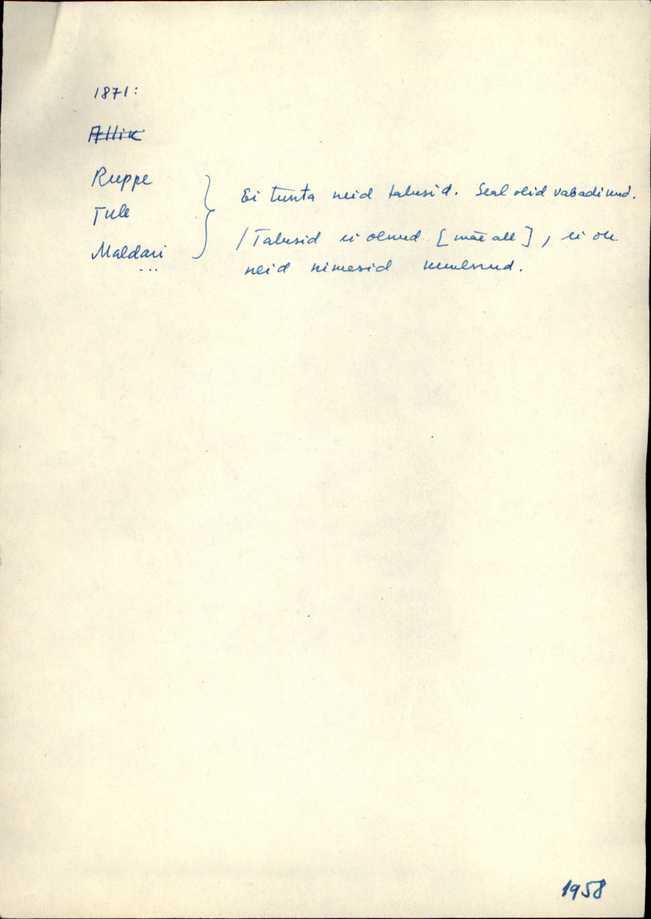 1871:
Allik
Ruppe
Tule
Maldari
Ei tunta neid talusid. Seal olid vabadikud.
/Talusid ei olnud [mäe all], ei ole
neid nimesid kuulnud.
1958